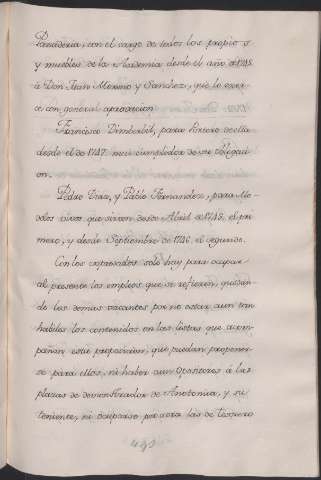 Panaderia, con el cargo de todos los propios
y muebles de la Academia desde el año de 1745
à Don Juan Moreno y Sanchez, que lo exer-
ce con general aprovacion
Francisco Dimbertil, para Portero de ella
desde el de 1747. mui cumplidor de su obligaci-
on.
Pedro Diaz, y Pablo Fernandez, para Mo-
delos vivos que sirven desde Abril de 1745. el pri-
mero, y desde Septiembre de 1746. el segundo.
Con los expresados solo hay para ocupar
al presente los empleos que se refieren, quedan-
do los demas vacantes por no estar aun tan
habiles los contenidos en las listas que acom-
pañan esta proposicion, que puedan proponer-
se para ellos, ni haber aun Opositores à las
plazas de demonstrador de Anotomia, y su
teniente, ni ocuparse por aora las de tesorero